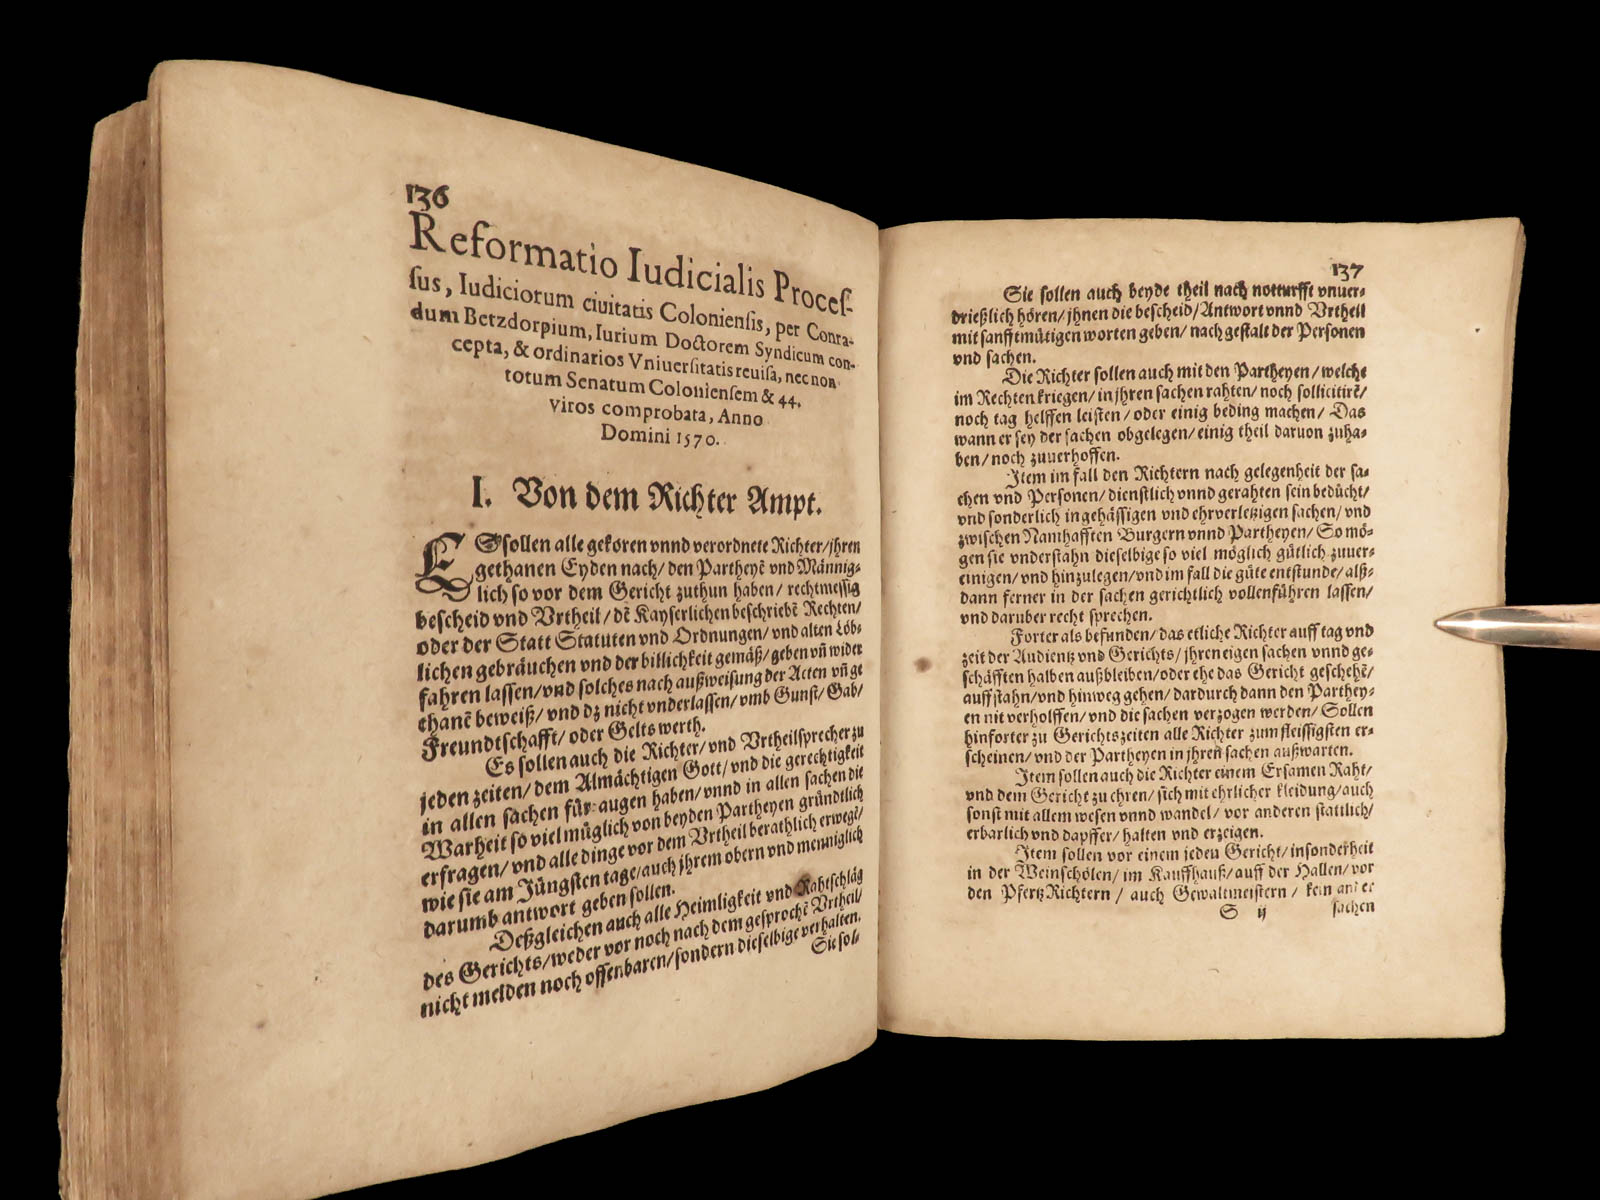 136
Reformatio Iudicialis Proceſ-
ſus, Iudiciorum ciuitatis Colonienſis, per Conra-
dum Betzdorpium, Iurium Doctorem Syndicum con-
cepta, & ordinarios Vniuerſitatis reuiſa, nec non
totum Senatum Colonienſem & 44.
viros comprobata, Anno
Domini 1570.
I. Von dem Richter Ampt.
ES ſollen alle gekoren vnnd verordnete Richter/jhren
gethanen Eyden nach/ den Partheyẽ vnd Männig-
lich ſo vor dem Gericht zuthun haben/ rechtmeſſig
beſcheid vnd Vrtheil/ dẽ Kayſerlichen beſchriebẽ Rechten/
oder der Statt Statuten vnd Ordnungen/ vnd alten Löb-
lichen gebräuchen vnd der billichkeit gemäß/ geben vñ wider
fahren laſſen/ vnd ſolches nach außweiſung der Acten vñ ge
thanẽ beweiß/ vnd dz nicht vnderlaſſen/ vmb Gunſt/ Gab/
Freundtſchafft/ oder Gelts werth.
Es ſollen auch die Richter/ vnd Vrtheilſprecher zu
jeden zeiten/ dem Almächtigen Gott/ vnd die gerechtigkeit
in allen ſachen für augen haben/ vnnd in allen ſachen die
Warheit ſo viel müglich von beyden Partheyen gründtlich
erfragen/ vnd alle dinge vor dem Vrtheil berathlich erwegẽ/
wie ſie am Jüngſten tage/ auch jhrem obern vnd menniglich
darumb antwort geben ſollen.
Deßgleichen auch alle Heimligkeit vnd Rahtſchläg
des Gerichts/ weder vor noch nach dem geſprochẽ Vrtheil/
nicht melden noch offenbaren/ ſondern dieſelbige verhalten.
Sie ſol-
137
Sie ſollen auch beyde theil nach notturfft vnuer-
drießlich hören/ jhnen die beſcheid/ Antwort vnnd Vrtheil
mit ſanfftmütigen worten geben/ nach geſtalt der Perſonen
vnd ſachen.
Die Richter ſollen auch mit den Partheyen/ welche
im Rechten kriegen/ in jhren ſachen rahten/ noch ſollicitirẽ/
noch tag helffen leiſten/ oder einig beding machen/ Das
wann er ſey der ſachen obgelegen/ einig theil daruon zuha-
ben/ noch zuuerhoffen.
Jtem im fall den Richtern nach gelegenheit der ſa-
chen vnd Perſonen/ dienſtlich vnnd gerahten ſein bedücht/
vnd ſonderlich in gehäſſigen vnd ehrverletzigen ſachen/ vnd
zwiſchen Namhafften Burgern vnnd Partheyen/ So mö-
gen ſie vnderſtahn dieſelbige ſo viel möglich gütlich zuuer-
einigen/ vnd hinzulegen/ vnd im fall die güte entſtunde/ alß-
dann ferner in der ſachen gerichtlich vollenführen laſſen/
vnd daruber recht ſprechen.
Forter als befunden/ das etliche Richter auff tag vnd
zeit der Audientz vnd Gerichts/ jhren eigen ſachen vnnd ge-
ſchäfften halben außbleiben/ oder ehe das Gericht geſchehẽ/
auffſtahn/ vnd hinweg gehen/ dardurch dann den Parthey-
en nit verholffen/ vnd die ſachen verzogen werden/ Sollen
hinforter zu Gerichtszeiten alle Richter zum fleiſſigſten er-
ſcheinen/ vnd der Partheyen in jhren ſachen außwarten.
Jtem ſollen auch die Richter einem Erſamen Raht/
vnd dem Gericht zu ehren/ ſich mit ehrlicher kleidung/ auch
ſonſt mit allem weſen vnnd wandel/ vor anderen ſtattlich/
erbarlich vnd dapffer/ halten vnd erzeigen.
Jtem ſollen vor einem jeden Gericht/ inſonderheit
in der Weinſchölen/ im Kauffhauß/ auff der Hallen/ vor
den Pfertz Richtern/ auch Gewaltmeiſtern/ kein ander
S ij ſachen